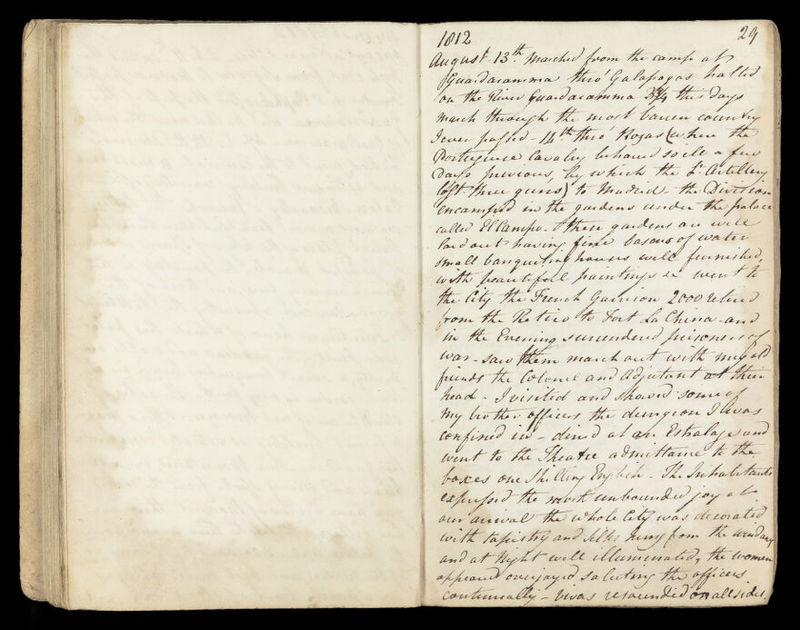 1812 29
August 13th Marched from the camp at
Guardaramma thro' Galapagos halted
on the River Guardaramma 3/4 this days
march through the most barren country
I ever passed - 14th thro' Rozas (where the
Portuguese Cavalry behaved so ill a few
Days previous, by which the Lt Artillery
lost three guns) to Madrid the Division
encamped in the gardens under the palace
called El Campo. these gardens are well
laid out having fine basons of water
small banqueting houses well furnished,
with beautiful paintings &c went to
the City the French Garrison 2000 retired
from the Retiro to Fort La China - and
in the Evening surrendered prisoners of
war - saw them march out with my old
friends the Colonel and Adjutant at their
head - I visited and shewed some of
my brother officers the dungeon I was
confined in - dined at an Estalage and
went to the Theatre admittance to the
boxes one Shilling English - The Inhabitants
expressed the most unbounded joy at
our arrival the whole City was decorated
with tapistry and silks hung from the windows
and at Night well illuminated, the women
appeared overjoyed saluting the officers
continually - vivas resounded on all sides.